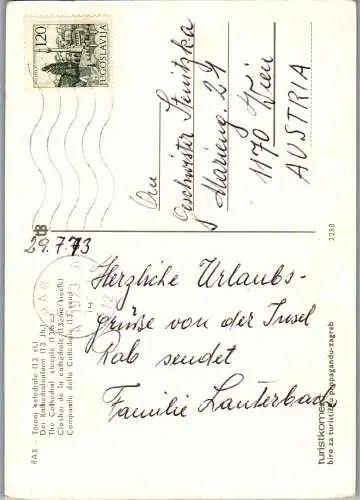 1.20
JUGOSLAVIJA
An
Geschwister Stenitzka
Marieng. 24
1170 Wien
AUSTRIA
29.7.73
Herzliche Urlaubs-
grüße von der Insel
Rab sendet
Familie Lauterbach
RAB - Toranj katedrale (13 st.)
Der Kathedralenturm (13 Jh.)
The Cathedral steeple
Clocher de la cathédrale (13-ème siècle)
Campanile della Cattedrale (13 sec.)
turistkomerc
biro za turističku propagandu-zagreb
2280